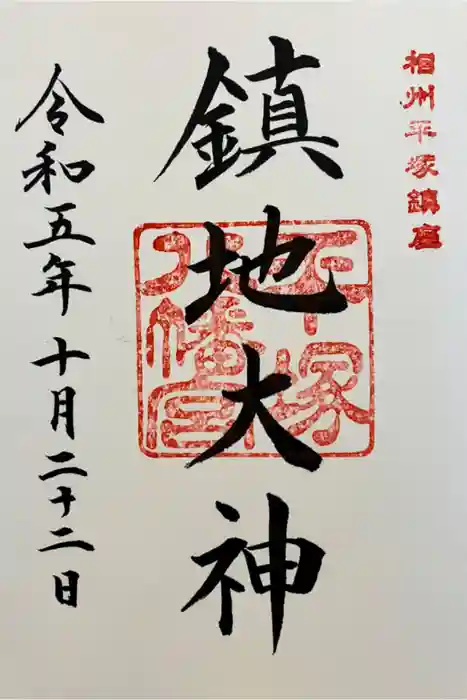 相州平塚鎮座
鎮地大神
平塚
八幡宮
令和五年十月二十二日